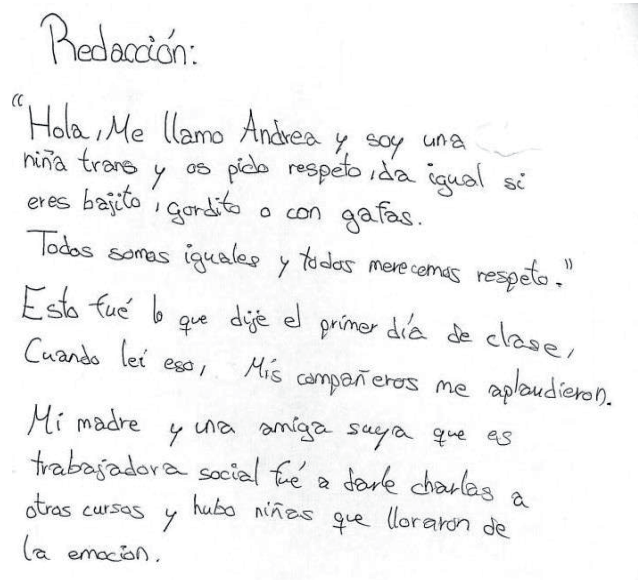 Redacción:
"Hola, Me llamo Andrea y soy una
niña trans y os pido respeto, da igual si
eres bajito, gordito o con gafas.
Todos somos iguales y todos merecemos respeto."
Esto fué lo que dije el primer día de clase,
Cuando leí eso, Mis compañeros me aplaudieron.
Mi madre y una amiga suya que es
trabajadora social fué a darle charlas a
otros cursos y hubo niños que lloraron de
la emoción.